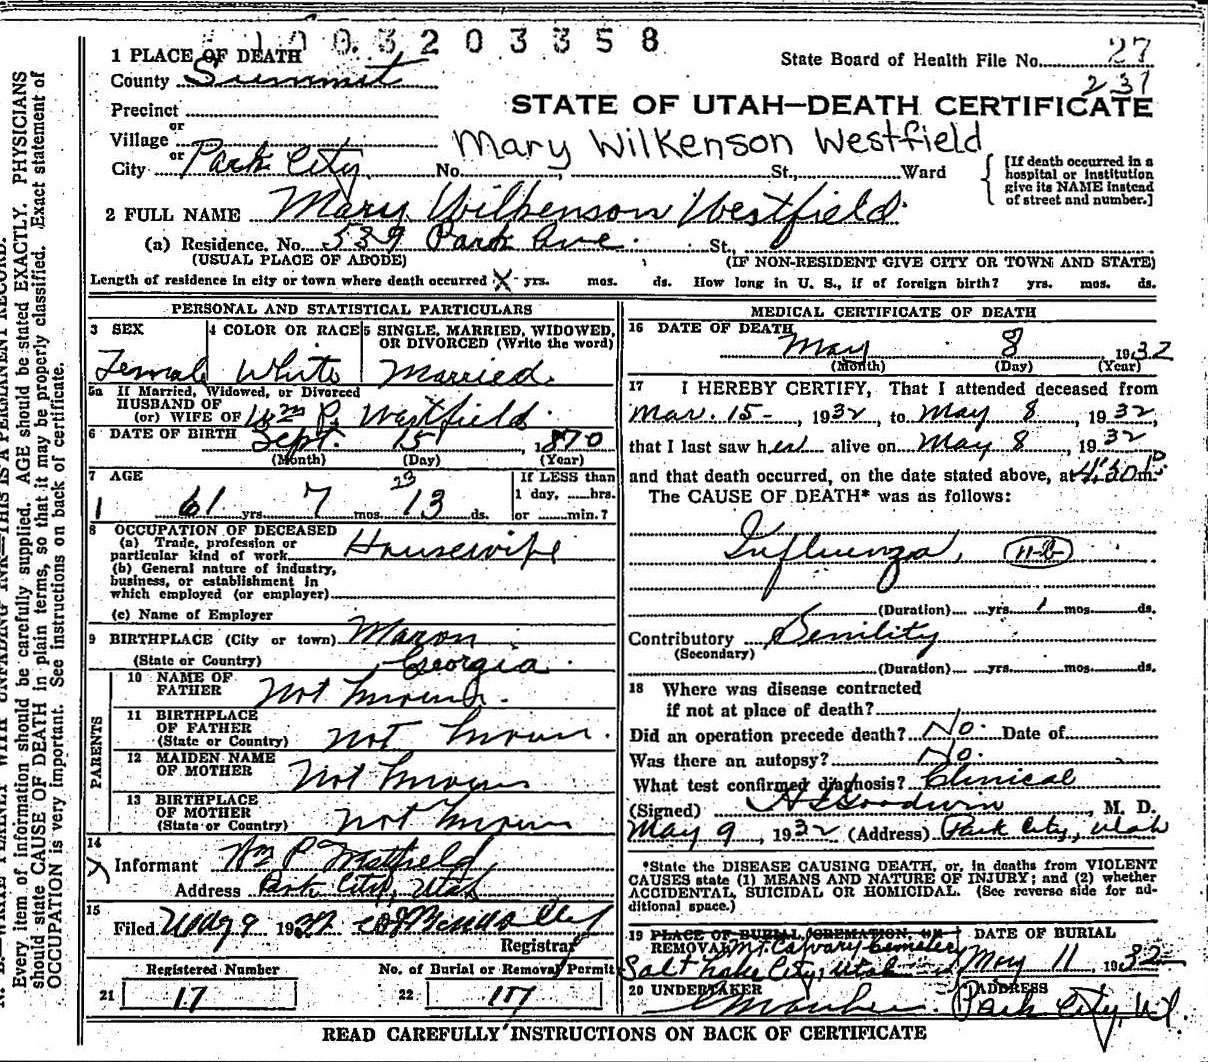 1003203358
1 PLACE OF DEATH
State Board of Health File No. 27
County Summit
237
Precinct
STATE OF UTAH—DEATH CERTIFICATE
or
Village
Mary Wilkenson Westfield
or
City Park City, No. St., Ward
[If death occurred in a
hospital or institution
give its NAME instead
of street and number.]
2 FULL NAME Mary Wilkenson Westfield
(a) Residence, No. 539 Park Ave. St.,
(USUAL PLACE OF ABODE) (IF NON-RESIDENT GIVE CITY OR TOWN AND STATE)
Length of residence in city or town where death occurred X yrs. mos. ds. How long in U. S., if of foreign birth? yrs. mos. ds.
PERSONAL AND STATISTICAL PARTICULARS
3 SEX
Female
4 COLOR OR RACE
White
5 SINGLE, MARRIED, WIDOWED,
OR DIVORCED (Write the word)
Married
5a If Married, Widowed, or Divorced
HUSBAND OF
(or) WIFE OF Wm P. Westfield
6 DATE OF BIRTH Sept. 15 1870
(Month) (Day) (Year)
7 AGE
23
61 yrs. 7 mos. 13 ds.
If LESS than
1 day, hrs.
or min.?
8 OCCUPATION OF DECEASED
(a) Trade, profession or
particular kind of work Housewife
(b) General nature of industry,
business, or establishment in
which employed (or employer)
(c) Name of Employer
9 BIRTHPLACE (City or town) Macon
(State or Country) Georgia
PARENTS
10 NAME OF
FATHER Not known
11 BIRTHPLACE
OF FATHER
(State or Country) not known
12 MAIDEN NAME
OF MOTHER Not known
13 BIRTHPLACE
OF MOTHER
(State or Country) not known
14
Informant Wm P Westfield
Address Park City, Utah
15
Filed May 9 1932
Registrar
Registered Number
21 17
No. of Burial or Removal Permit
22 117
MEDICAL CERTIFICATE OF DEATH
16 DATE OF DEATH
May 8 1932
(Month) (Day) (Year)
17 I HEREBY CERTIFY, That I attended deceased from
Mar. 15- 1932, to May 8, 1932,
that I last saw her alive on May 8, 1932
and that death occurred, on the date stated above, at 4:30 P m.
The CAUSE OF DEATH* was as follows:
Influenza, 11-B
(Duration) yrs. 1 mos. ds.
Contributory Senility
(Secondary)
(Duration) yrs. mos. ds.
18 Where was disease contracted
if not at place of death?
Did an operation precede death? No. Date of
Was there an autopsy? No.
What test confirmed diagnosis? Clinical
(Signed) Goodwin, M. D.
May 9, 1932 (Address) Park City, Utah
*State the DISEASE CAUSING DEATH, or, in deaths from VIOLENT
CAUSES state (1) MEANS AND NATURE OF INJURY; and (2) whether
ACCIDENTAL, SUICIDAL OR HOMICIDAL. (See reverse side for ad-
ditional space.)
19 PLACE OF BURIAL, CREMATION, OR
REMOVAL Mt. Calvary Cemetery
Salt Lake City, Utah
DATE OF BURIAL
May 11, 1932
20 UNDERTAKER
ADDRESS
Park City, Ut.
READ CAREFULLY INSTRUCTIONS ON BACK OF CERTIFICATE
Every item of information should be carefully supplied. AGE should be stated EXACTLY. PHYSICIANS
should state CAUSE OF DEATH in plain terms, so that it may be properly classified. Exact statement of
OCCUPATION is very important. See instructions on back of certificate.